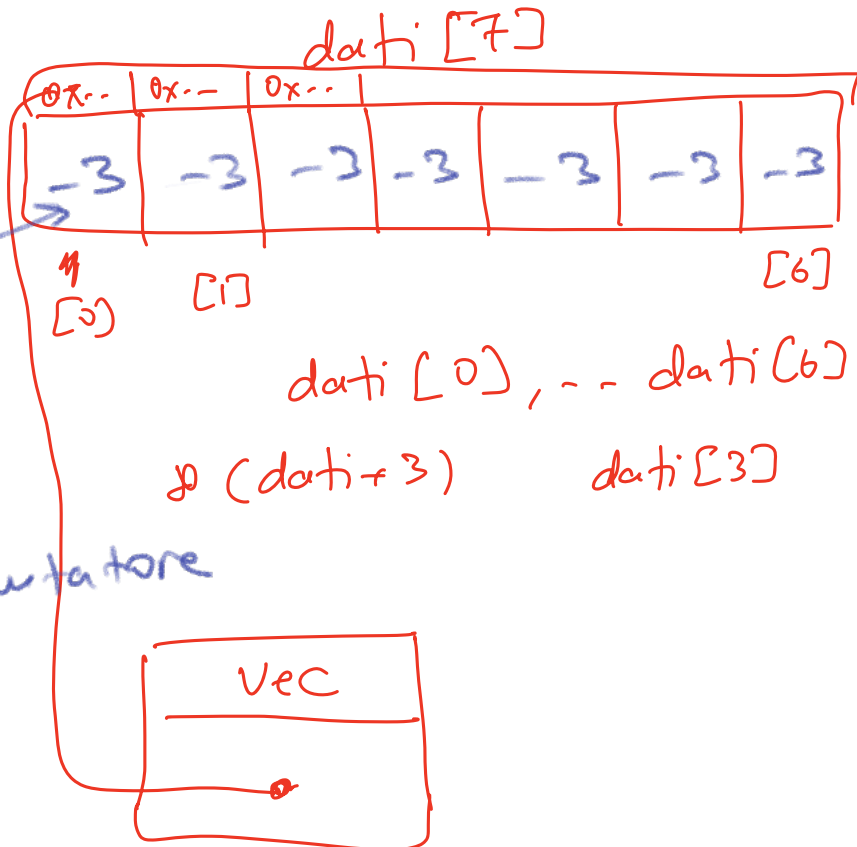 dati [7]
0x.. 0x.- 0x..
-3 -3 -3 -3 -3 -3 -3
[0] [1] [6]
dati [0], -- dati [6]
* (dati+3) dati [3]
ntatore
vec